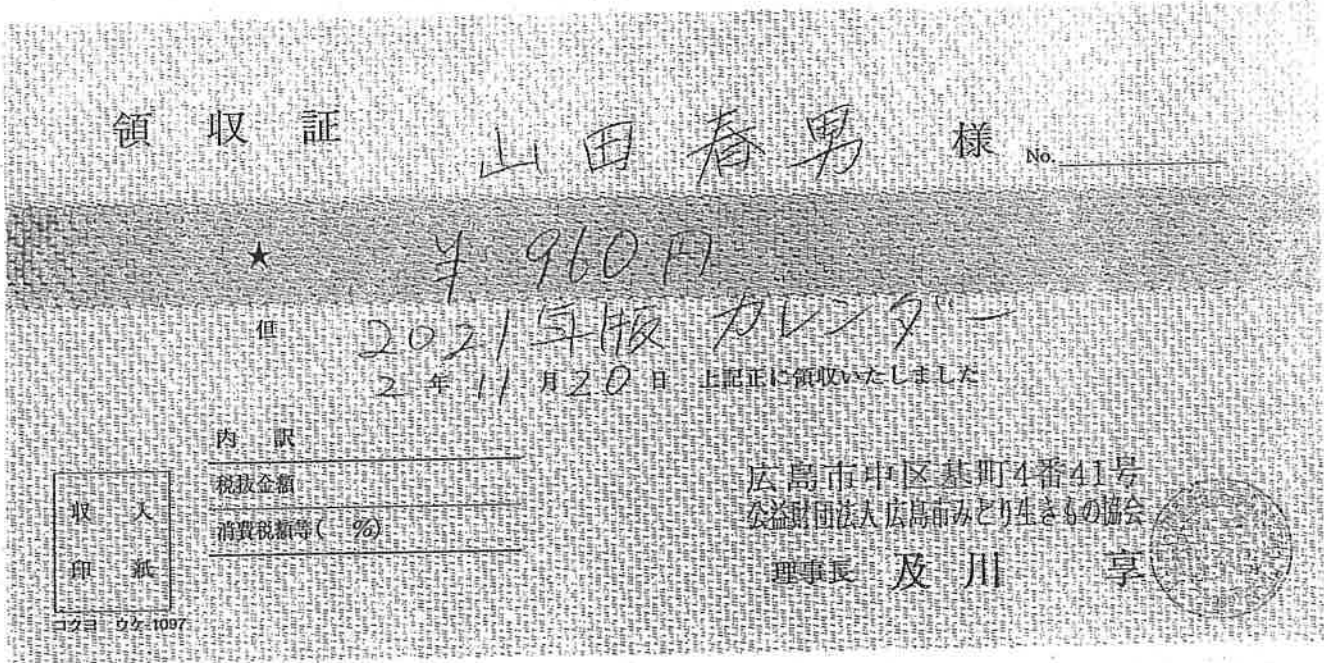 領収証 山田春男 様 No.
★ ¥960円
但 2021年版 カレンダー
2年11月20日 上記正に領収いたしました
内訳
税抜金額
消費税額等( %)
収入
印紙
コクヨ ウケ-1097
広島市中区基町4番41号
公益財団法人広島市みどり生きもの協会
理事長 及川 享